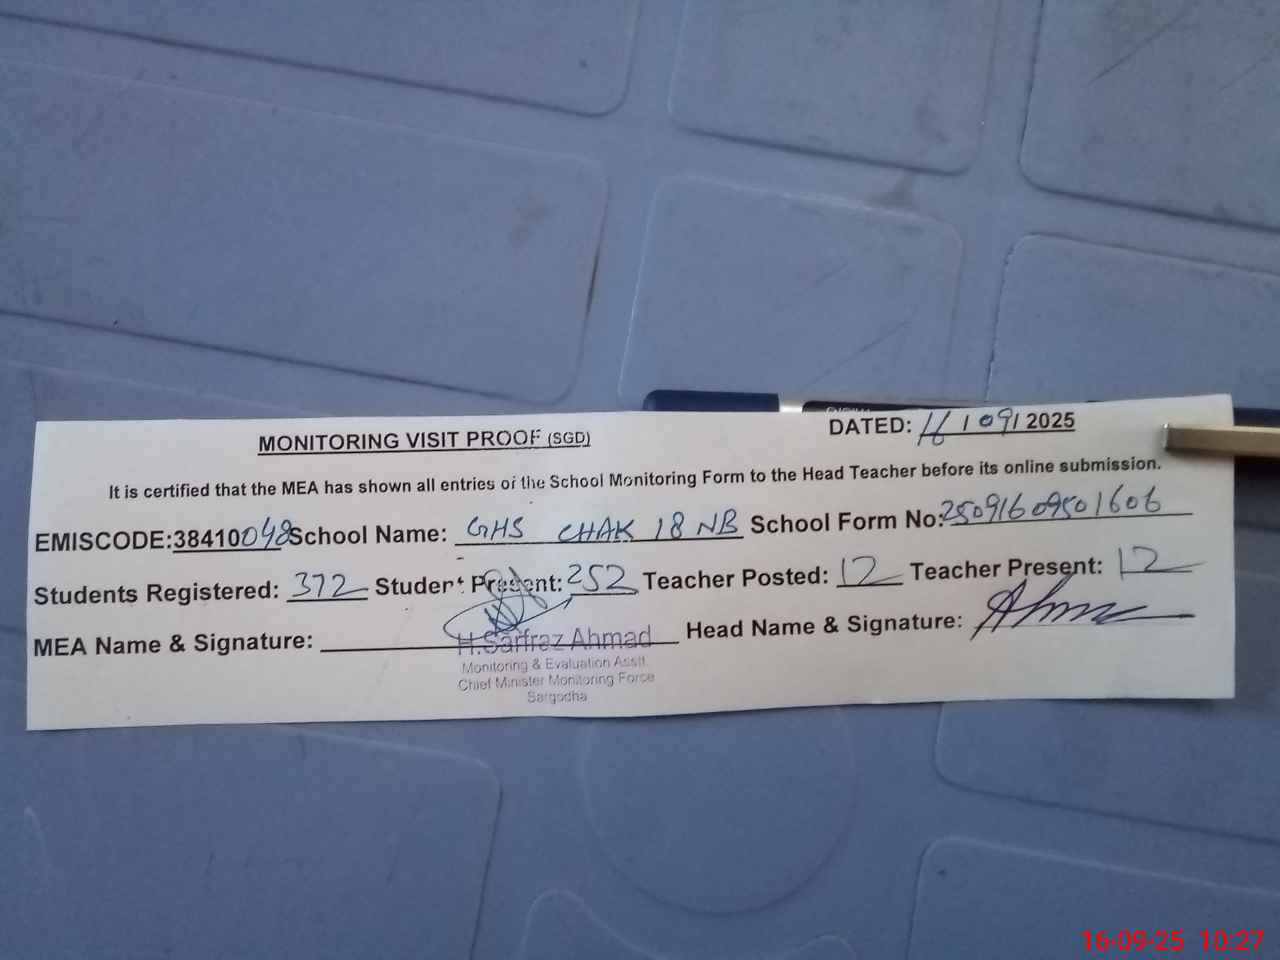 MONITORING VISIT PROOF (SGD)
DATED: 16/09/2025
It is certified that the MEA has shown all entries of the School Monitoring Form to the Head Teacher before its online submission.
EMISCODE:38410048 School Name: GHS CHAK 18 NB School Form No: 25091609501606
Students Registered: 372 Student Present: 252 Teacher Posted: 12 Teacher Present: 12
MEA Name & Signature: H.Sarfraz Ahmad Head Name & Signature:
Monitoring & Evaluation Asstt.
Chief Minister Monitoring Force
Sargodha
16-09-25 10:27